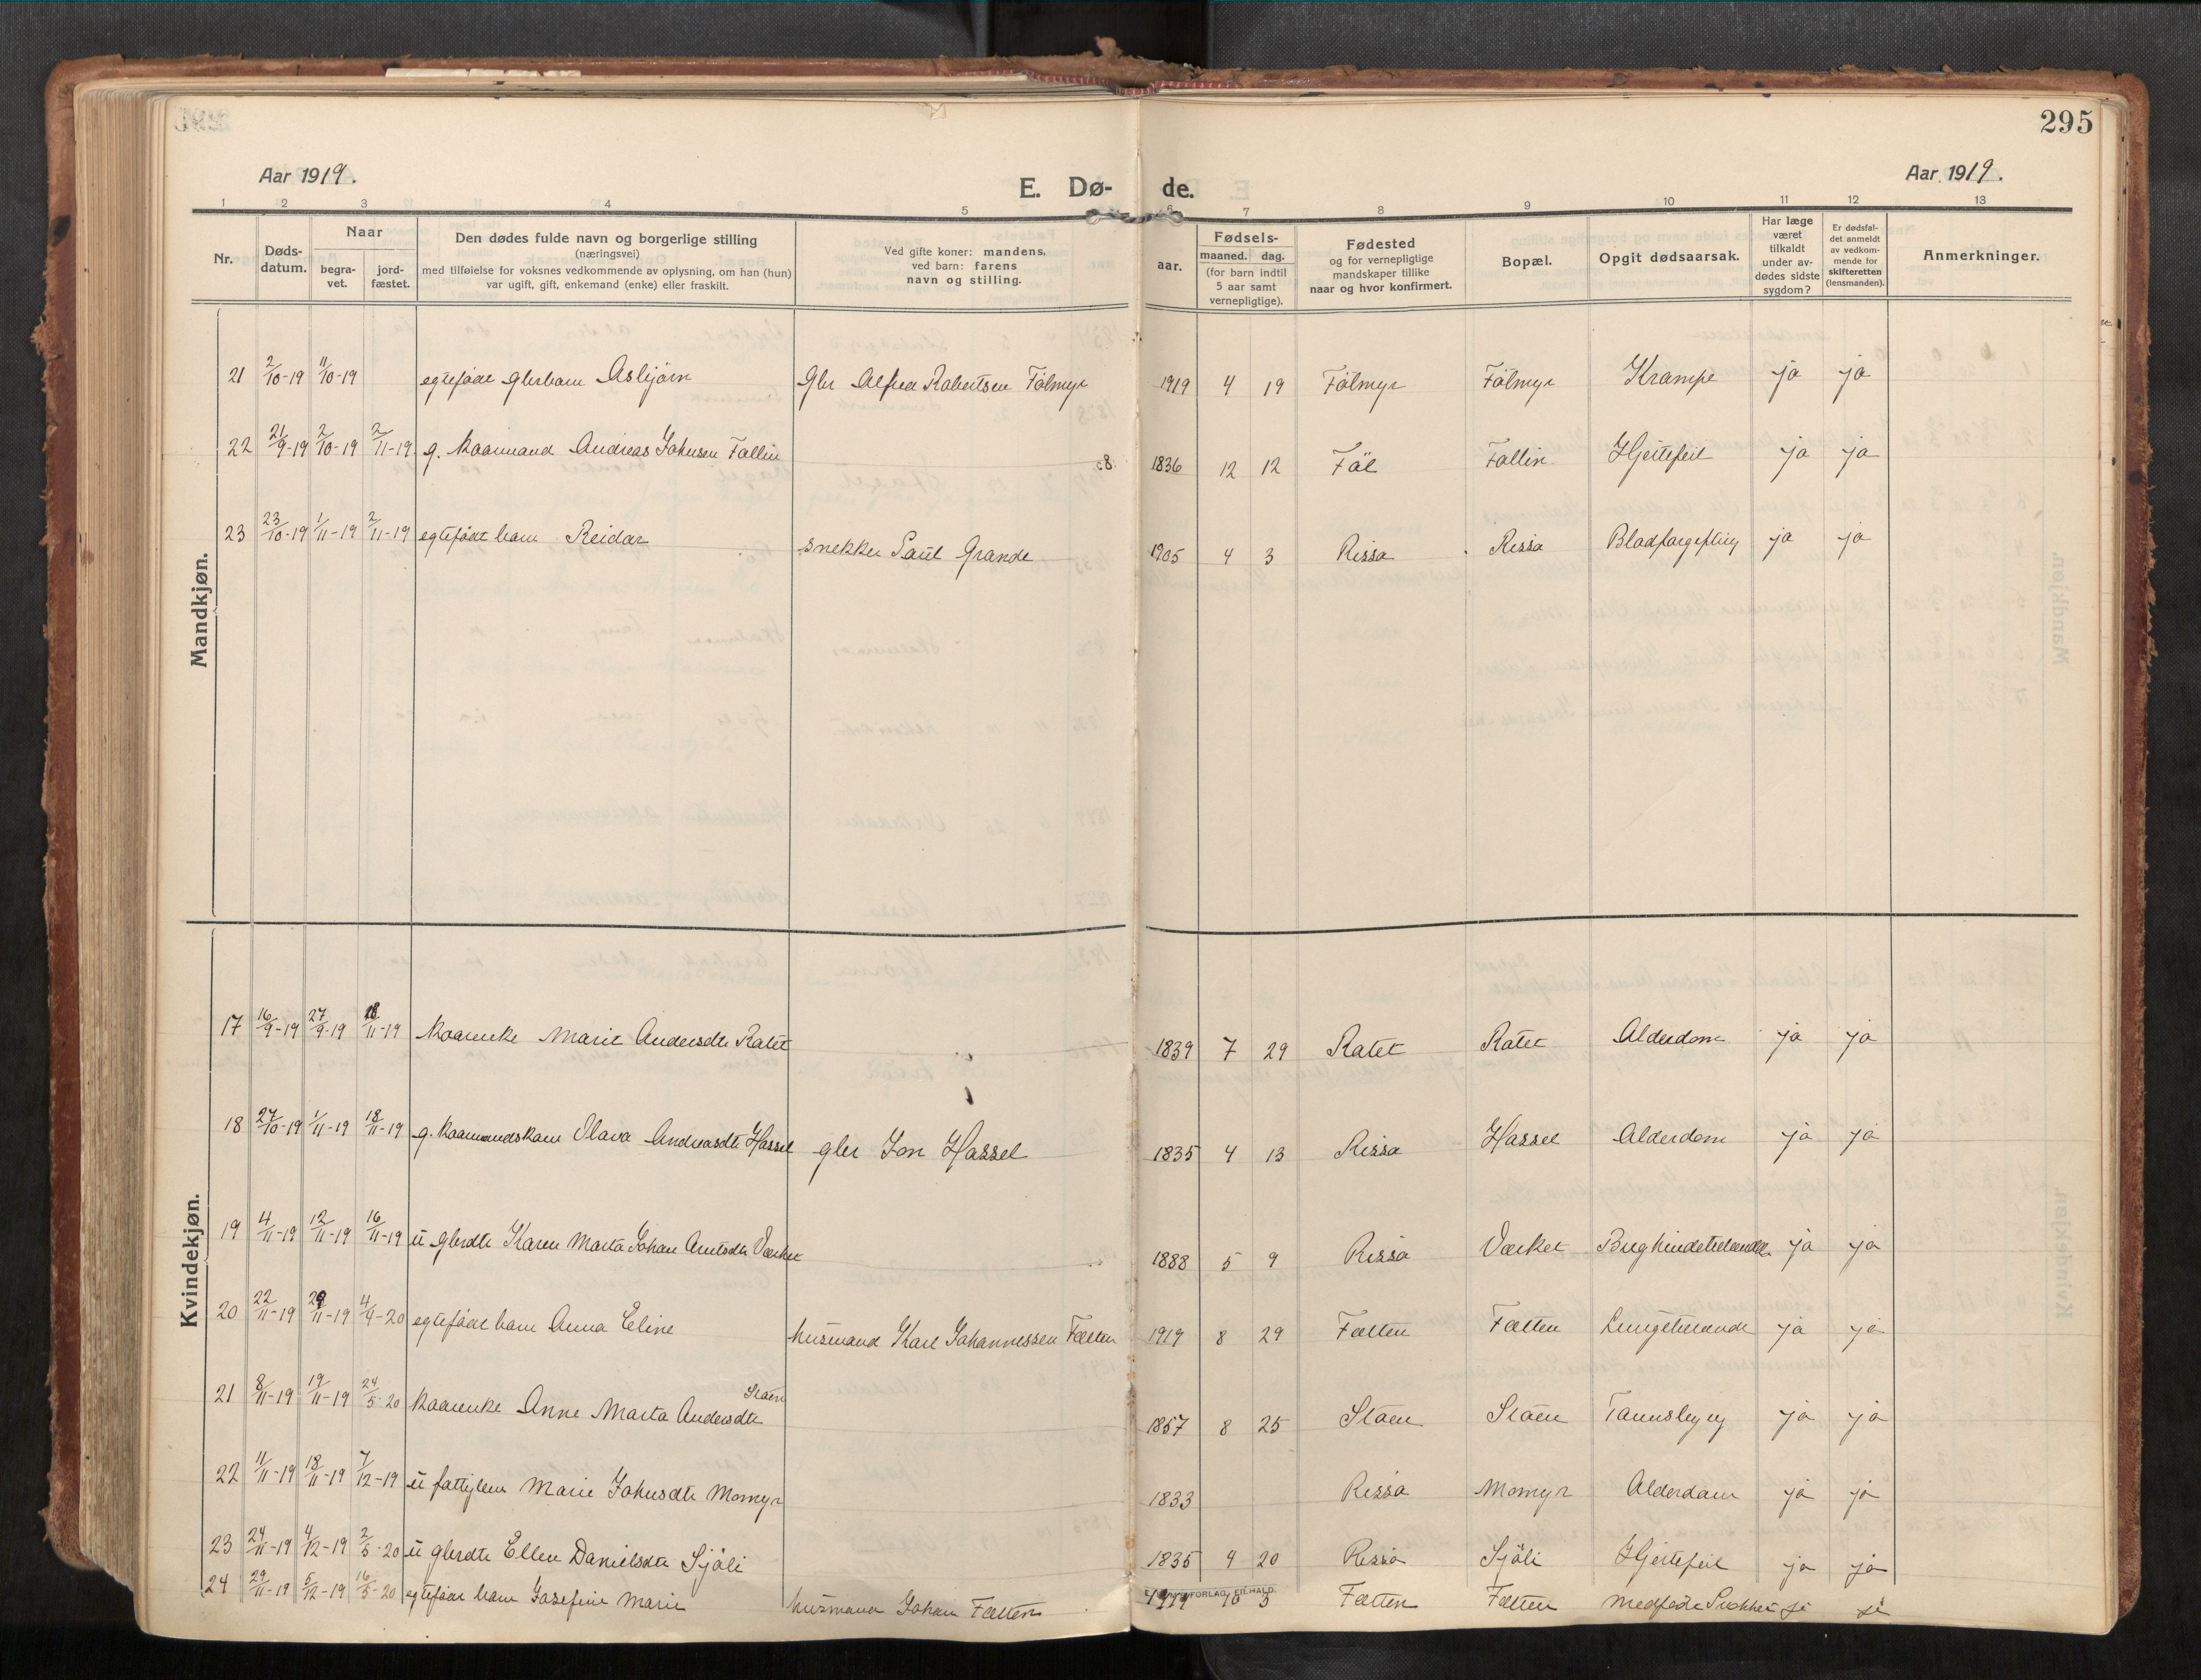 295
Aar 1919.
E. Dø-
de.
Aar 1919.
1 2 3 4 5 6 7 8 9 10 11 12 13
Nr.
Døds-
datum.
Naar
begra-
vet.
jord-
fæstet.
Den dødes fulde navn og borgerlige stilling
(næringsvei)
med tilføielse for voksnes vedkommende av oplysning, om han (hun)
var ugift, gift, enkemand (enke) eller fraskilt.
Ved gifte koner: mandens,
ved barn: farens
navn og stilling.
Fødsels-
aar.
maaned.
dag.
(for barn indtil
5 aar samt
vernepligtige).
Fødested
og for vernepligtige
mandskaper tillike
naar og hvor konfirmert.
Bopæl.
Opgit dødsaarsak.
Har læge
været
tilkaldt
under av-
dødes sidste
sygdom?
Er dødsfal-
det anmeldt
av vedkom-
mende for
skifteretten
(lensmanden).
Anmerkninger.
Mandkjøn.
21 2/10-19 11/10-19 egtefødt glerbarn Asbjörn Gbr Alfred Robertsen Fölmyr 1919 4 19 Fölmyr Fölmyr Krampe ja ja
22 21/9-19 2/10-19 2/11-19 g. kaarmand Andreas Johnsen Fallin 1836 12 12 Föl Fallin Hjertefeil ja ja
23 23/10-19 1/11-19 2/11-19 egtefødt barn Reidar snekker Paul Grande 1905 4 3 Rissa Rissa ja ja
Kvindekjøn.
17 16/9-19 27/9-19 kaarenke Marie Andersdtr Ratet 1839 7 29 Ratet Ratet Alderdom ja ja
18 27/10-19 1/11-19 18/11-19 g. kaarmandskone Olava Andreasdtr Hassel gbr Jon Hassel 1835 4 13 Rissa Hassel Alderdom ja ja
19 4/11-19 12/11-19 16/11-19 u gbrdtr Karen Marta Johan Arntsdtr Værket 1888 5 9 Rissa Værket ja ja
20 22/11-19 29/11-19 4/4-20 egtefødt barn Anna Eline husmand Karl Johannessen Fætten 1919 8 29 Fætten Fætten Lungebetænde ja ja
21 8/11-19 19/11-19 24/5-20 kaarenke Anne Marta Andersdtr Staen 1857 8 25 Staen Staen ja ja
22 11/11-19 18/11-19 7/12-19 u fattiglem Marie Johnsdtr Momyr 1833 Rissa Momyr Alderdom ja ja
23 24/11-19 4/12-19 2/5-20 u gbrdtr Ellen Danielsdtr Sjöli 1835 4 20 Rissa Sjöli Hjertefeil ja ja
24 29/11-19 5/12-19 16/5-20 egtefødt barn Josefine Marie husmand Johan Fætten 1919 10 5 Fætten Fætten medfødt Svakhet ja ja
FORLAG, EILHALD.